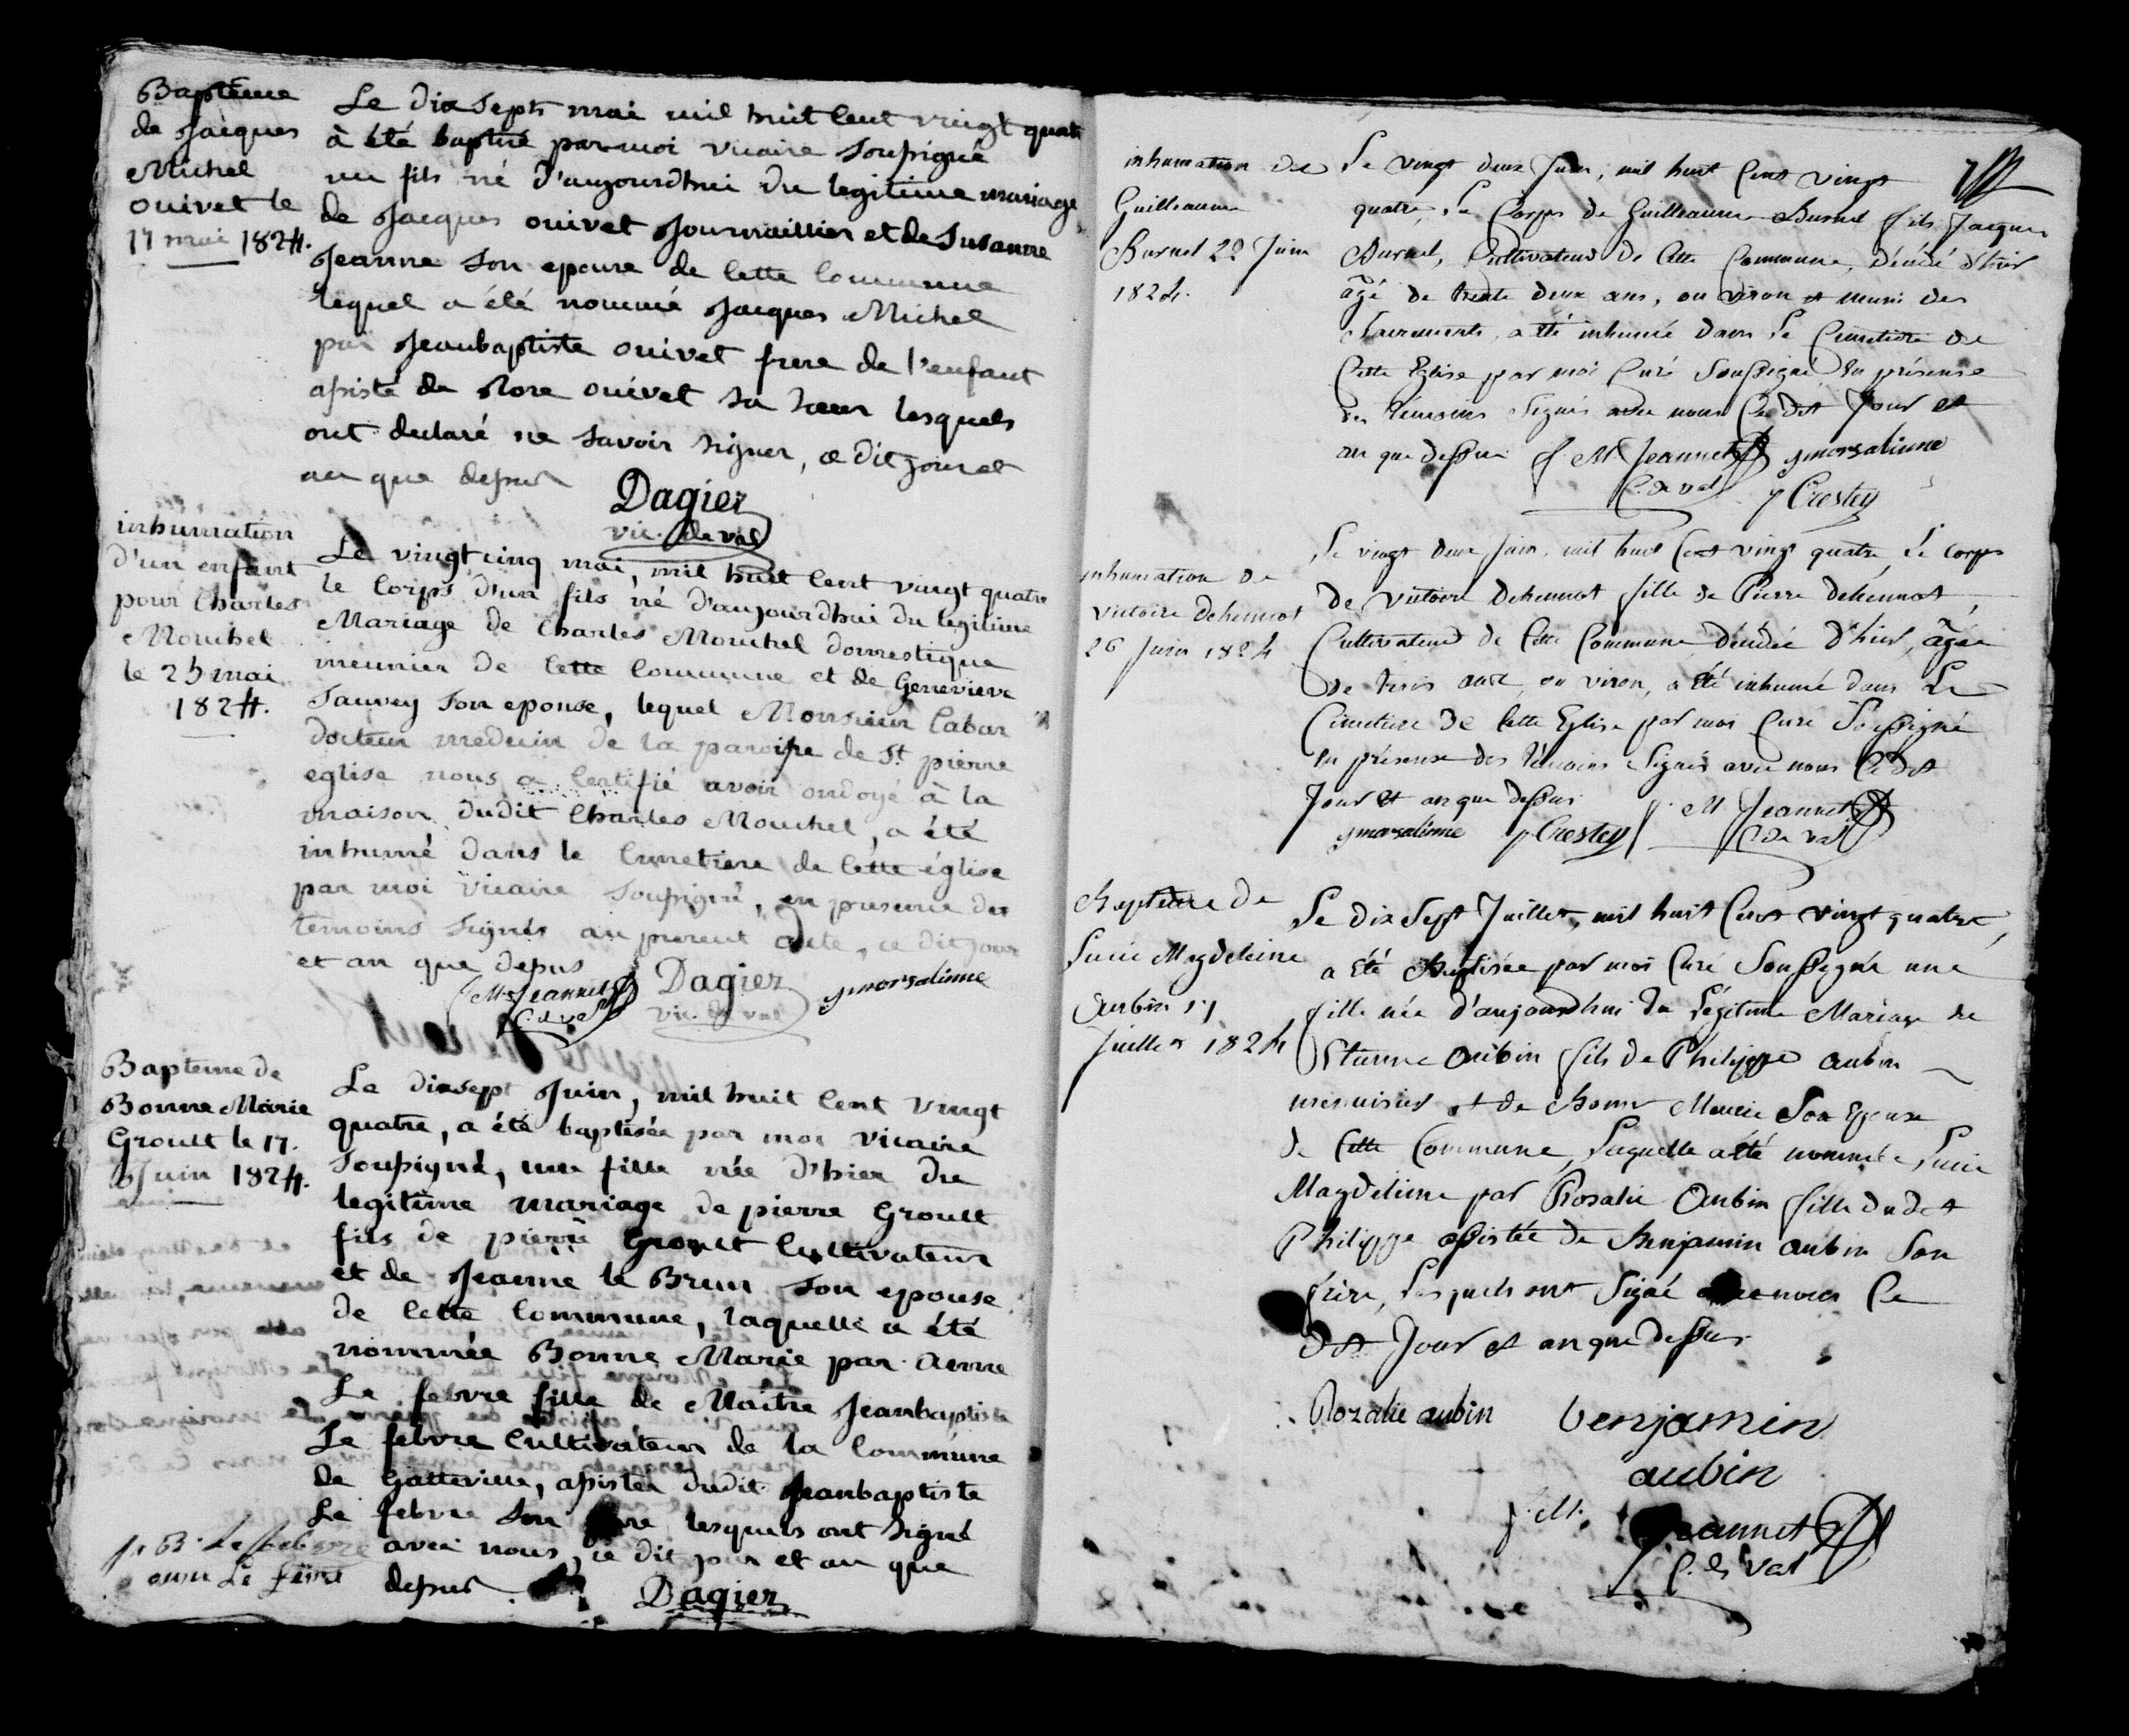 Baptême
de Jacques
Michel
ouivet le
17 mai 1824.
Le dix sept mai mil huit Cent vingt quatre
à été baptisé par moi vicaire Soussigné
un fils né d'aujourdhui du legitime mariage
de Jacques ouivet Journaillier et de Susanne
Jeanne Son epouse de Cette Commune
lequel a été nommé Jacques Michel
par Jeanbaptiste ouivet frere de l'enfant
assisté de Rose ouivet Sa Soeur lesquels
ont declaré ne Savoir Signer, ce dit jour et
an que dessus
Dagier
vic. de val
inhumation
d'un enfant
pour Charles
Mouchel
le 25 mai
1824.
Le vingt cinq mai, mil huit Cent vingt quatre
le Corps d'un fils né d'aujourdhui du legitime
Mariage de Charles Mouchel domestique
meunier de Cette Commune et de Genevieve
Sauvey Son epouse, lequel Monsieur Cabar
docteur medecin de la paroisse de St. pierre
eglise nous a Certifié avoir ondoyé à la
maison dudit Charles Mouchel, a été
inhumé dans le Cimetiere de Cette église
par moi Vicaire Soussigné, en presence des
temoins Signés au present acte, ce dit jour
et an que dessus
M Jeannet
C. de val
Dagier
vic. de val
gmorsalinne
Bapteme de
Bonne Marie
Groult le 17.
Juin 1824.
Le dixsept Juin, mil huit Cent Vingt
quatre, a été baptisée par moi Vicaire
Soussigné, une fille née d'hier du
legitime mariage de pierre Groult
fils de pierre Groult Cultivateur
et de Jeanne le Brun Son epouse
de Cette Commune, laquelle a été
nommée Bonne Marie par anne
Le febvre fille de Maitre Jeanbaptiste
Le febvre Cultivateur de la Commune
de Gatteville, assistée dudit Jeanbaptiste
Le febvre Son lesquels ont Signé
avec nous, ce dit jour et an que
dessus
Dagier
inhumation de
Guilleaume
Burnel 22 Juin
1824.
Le vingt deux Juin, mil huit Cent vingt
quatre, Le Corps de Guilleaume Burnel fils Jacques
Burnel, Cultivateur de Cette Commune, décédé d'hier
âgé de trente deux ans, ou viron et muni des
Sacrements, a été inhumé dans Le Cimetiere de
Cette Eglise par moi Curé Soussigné En présence
des témoins Signés avec nous Ce dit Jour et
an que dessus f. M Jeannet gmorsalinne
C. de val p Crestey
inhumation de
victoire Dehennot
26 Juin 1824
Le vingt deux Juin, mil huit Cent vingt quatre, Le Corps
de victoire Dehennot fille de Pierre Dehennot,
Cultivateur de Cette Commune décédée d'hier, âgée
de trois ans, ou viron, a été inhumé dans Le
Cimetiere de Cette Eglise par moi Curé Soussigné
En présence des témoins Signés avec nous Ce dit
Jour et an que dessus
gmorsalinne p Crestey f. M Jeannet
C. de val
Bapteme de
Lucie Magdeleine
Aubin 17
Juillet 1824
Le dix Sept Juillet, mil huit Cent vingt quatre,
a été Baptisée par moi Curé Soussigné une
fille née d'aujourdhui du Légitime Mariage de
Etienne Aubin fils de Philippe aubin
menuisier et de Bonne Son Epouse
de Cette Commune, Laquelle a été nommée Lucie
Magdeleine par Rosalie Aubin fille dudit
Philippe assistée de Benjamin aubin Son
frère, Lesquels ont Signé avec nous Ce
dit Jour et an que dessus
Rozalie aubin benjamin
aubin
f. M. Jeannet
C. de val